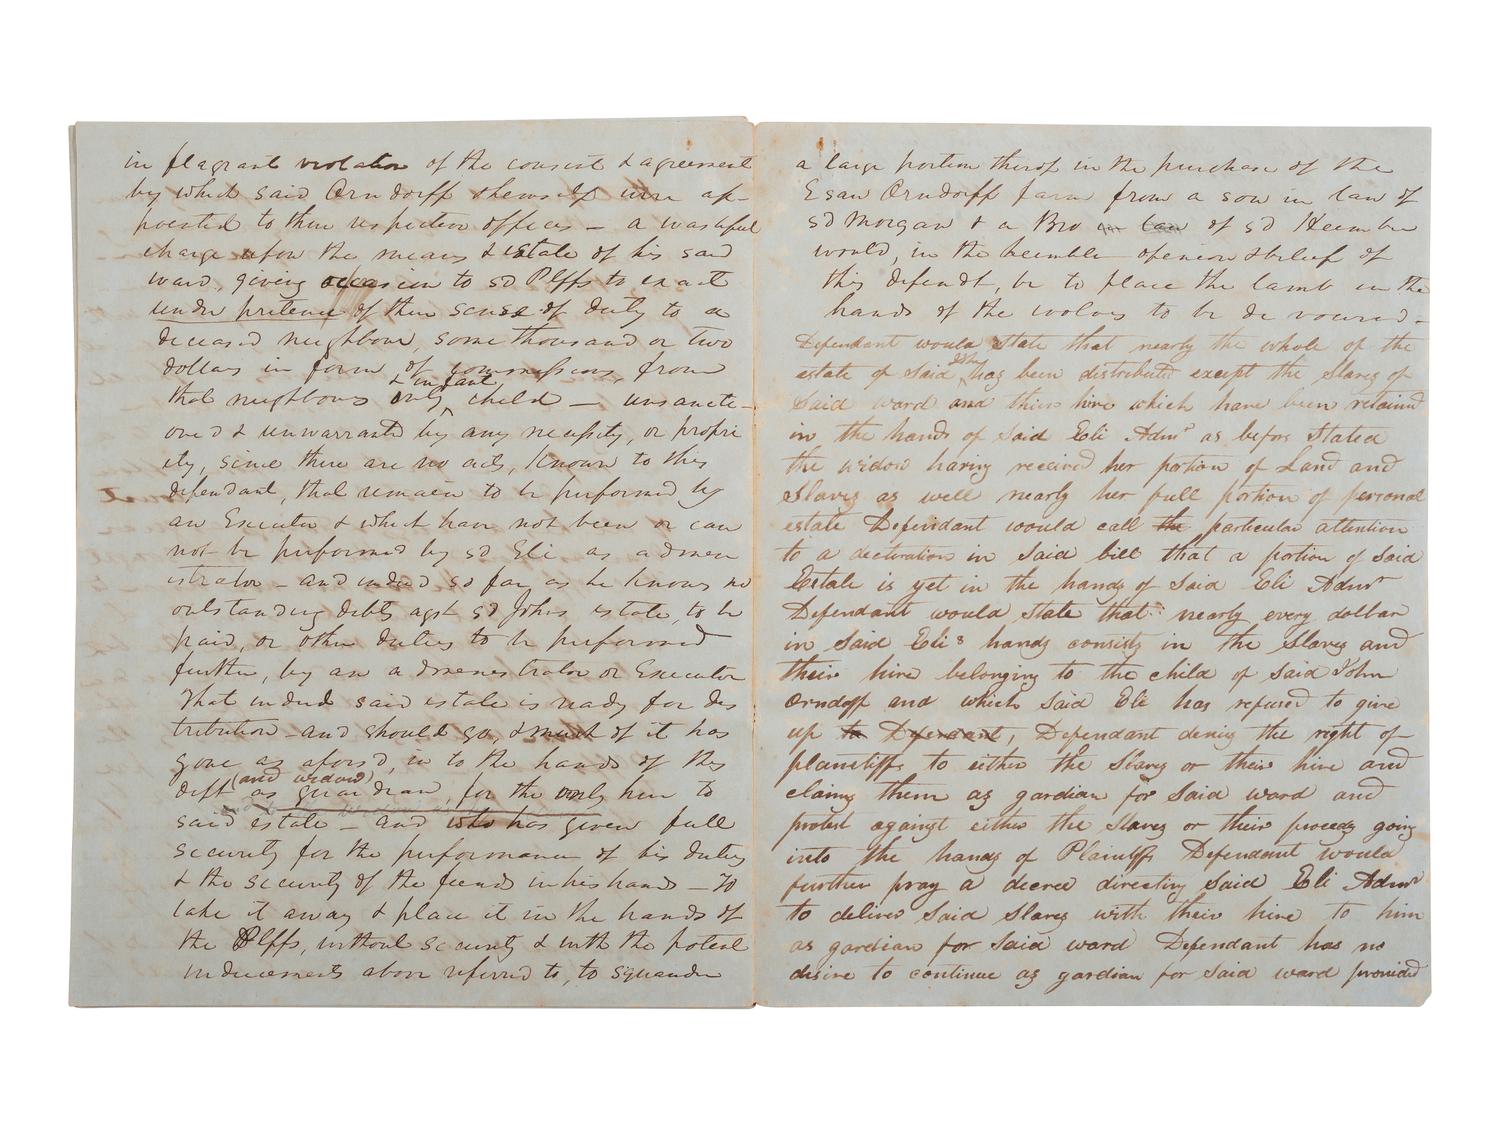 in flagrant violation of the consent & agreement
by which said Orndorff themself were ap-
pointed to their respective offices – a wasteful
charge upon the means & estate of his said
ward, giving occasion to sd Plffs to exact
under pretence of their sense of duty to a
deceased neighbour, some thousand or two
dollars in form of commissions, from
& infant
that neighbours only child – unsancti-
oned & unwarranted by any necessity, or propri
ety, since there are no acts, known to this
defendant, that remain to be performed by
an Executor & which have not been or can
not be performed by sd Eli as admin
istrator – and indeed so far as he knows no
outstanding debts agst sd Johns estate, to be
paid, or other duties to be performed
further, by an administrator or Executor
That indeed said estate is ready for dis
tribution – and should go, & much of it has
gone as aforsd, in to the hands of this
(and widow)
deft as guardian, for the only heir to
said estate – and who has given full
security for the performance of his duties
& the security of the funds in his hands – To
take it away & place it in the hands of
the Plffs, without security & with the potent
inducements above referred to, to squander
a large portion therof in the purchase of the
Esau Orndorff farm from a son in law of
sd Morgan & a Bro in law of sd Heember
would, in the humble openion & belief of
this defendt, be to place the lamb in the
hands of the wolves to be devoured –
Defendant would state that nearly the whole of the
estate of said John has been distributed except the Slaves of
Said ward and thier hire which have been retained
in the hands of Said Eli Admr as before Stated
the widow having received her portion of Land and
Slaves as well nearly her full portion of personal
estate Defendant would call the particular attention
to a declaration in Said bill that a portion of Said
Estate is yet in the hands of Said Eli Admr
Defendant would State that nearly every dollar
in Said Eli's hands consists in the Slaves and
their hire belonging to the child of Said John
Orndoff and which Said Eli has refused to give
up to Defendant, Defendant denies the right of
plaintiffs to either the Slaves or their hire and
claims them as gardian for Said ward and
protest against either the Slaves or their proceeds going
into the hands of Plaintiffs Defendant would
further pray a decree directing Said Eli Admr
to deliver Said Slaves with their hire to him
as gardian for Said ward Defendant has no
desire to continue as gardian for Said ward provided